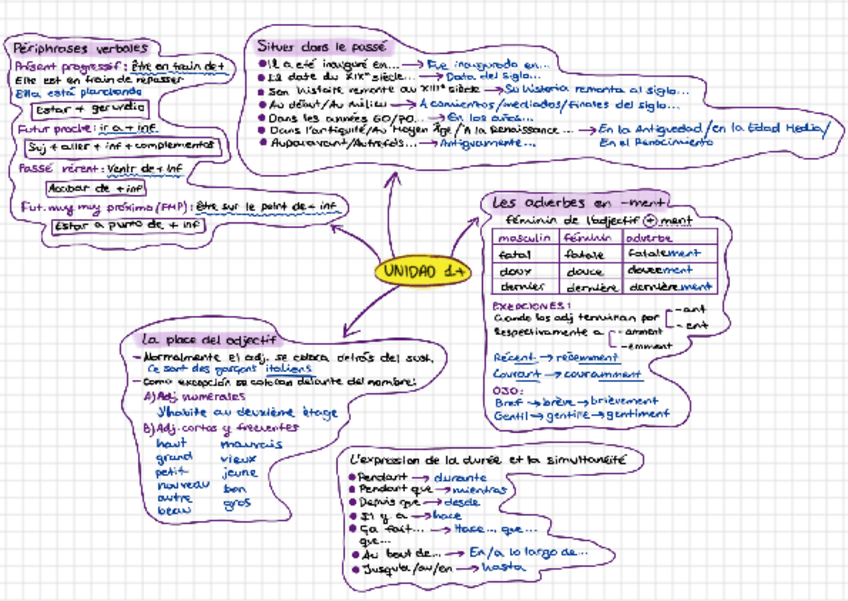 Périphrases verbales
Présent progressif: être en train de +
Elle est en train de repasser
Ella está planchando
Estar + gerundio
Futur proche: ir a + inf.
Suj + aller + inf + complementos
Passé récent: Venir de + inf
Acabar de + inf
Fut. muy muy próximo (FMP): être sur le point de + inf
Estar a punto de + inf
Situer dans le passé
Il a été inauguré en... → Fue inaugurado en...
Il date du XIXe siècle... → Data del siglo...
Son histoire remonte au XIIIe siècle → Su historia remonta al siglo...
Au début/Au milieu → A comienzos/mediados/finales del siglo...
Dans les années 60/70... → En los años...
Dans l'antiguité/Au Moyen Âge/A la Renaissance... → En la Antiguedad/en la Edad Media/
En el Renacimiento
Auparavant/Autrefois... → Antiguamente...
UNIDAD 1+
Les adverbes en -ment
féminin de l'adjectif + ment
masculin féminin adverbe
fatal fatale fatalement
doux douce doucement
dernier dernière dernièrement
EXEPCIONES:
Cuando los adj terminan por -ant
-ent
Respectivamente a -amment
-emment
Récent → récemment
Courant → couramment
OJO:
Bref → brève → brièvement
Gentil → gentire → gentiment
La place del adjectif
- Normalmente el adj. se coloca detrás del sust.
Ce sont des garçons italiens
- Como excepción se colocan delante del nombre:
A) Adj numérales
J'habite au deuxième étage
B) Adj. cortos y frecuentes
haut mauvais
grand vieux
petit jeune
nouveau bon
autre gros
beau
L'expression de la durée et la simultanéité
Pendant → durante
Pendant que → mientras
Depuis que → desde
Il y a → hace
Ça fait... → Hace... que...
que...
Au bout de... → En/a lo largo de...
Jusqu'a/au/en → hasta